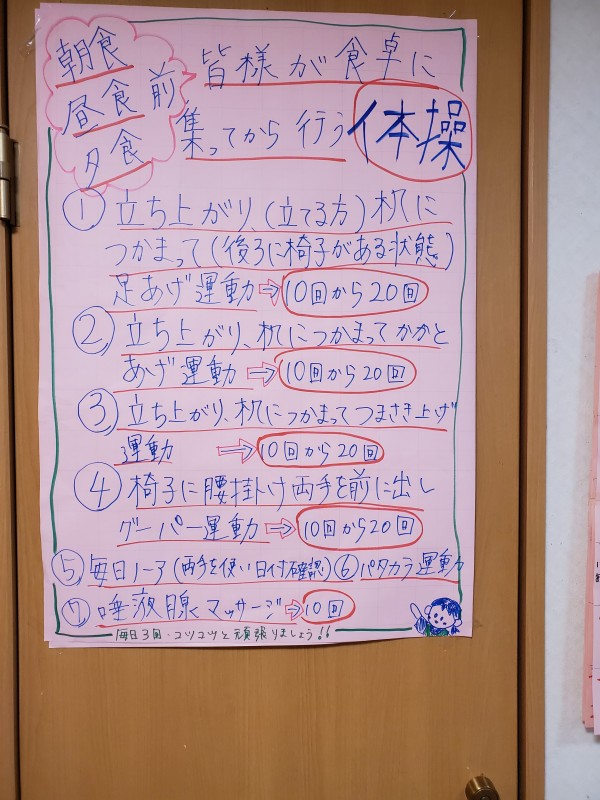 朝食
昼食 前
夕食
皆様が食卓に
集ってから行う体操
① 立ち上がり、(立てる方) 机に
つかまって(後ろに椅子がある状態)
足あげ運動⇨10回から20回
② 立ち上がり、机につかまってかかと
あげ運動⇨10回から20回
③ 立ち上がり、机につかまってつまさき上げ
運動 ⇨10回から20回
④ 椅子に腰掛け両手を前に出し
グーパー運動⇨10回から20回
⑤ 毎日1~3(両手を使い日付確認) ⑥ パタカラ運動
⑦ 唾液腺マッサージ⇨10回
毎日3回・コツコツと頑張りましょう!!